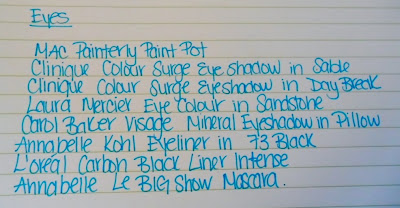 Eyes
MAC Painterly Paint Pot
Clinique Colour Surge Eyeshadow in Sable
Clinique Colour Surge Eyeshadow in Day Break
Laura Mercier Eye Colour in Sandstone
Carol Baker Visage Mineral Eyeshadow in Pillow
Annabelle Kohl Eyeliner in 73 Black
L'oréal Carbon Black Liner Intense
Annabelle Le BIG Show Mascara.